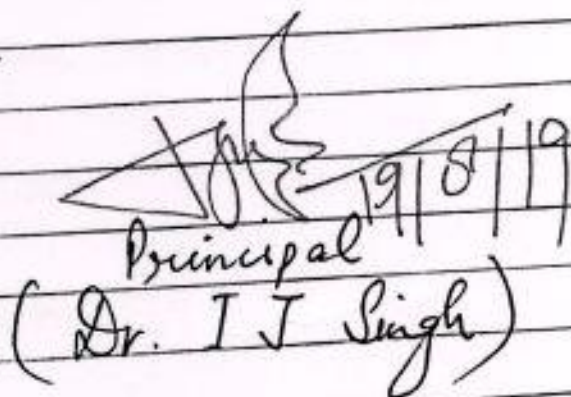 19/8/19
Principal
(Dr. I J Singh)